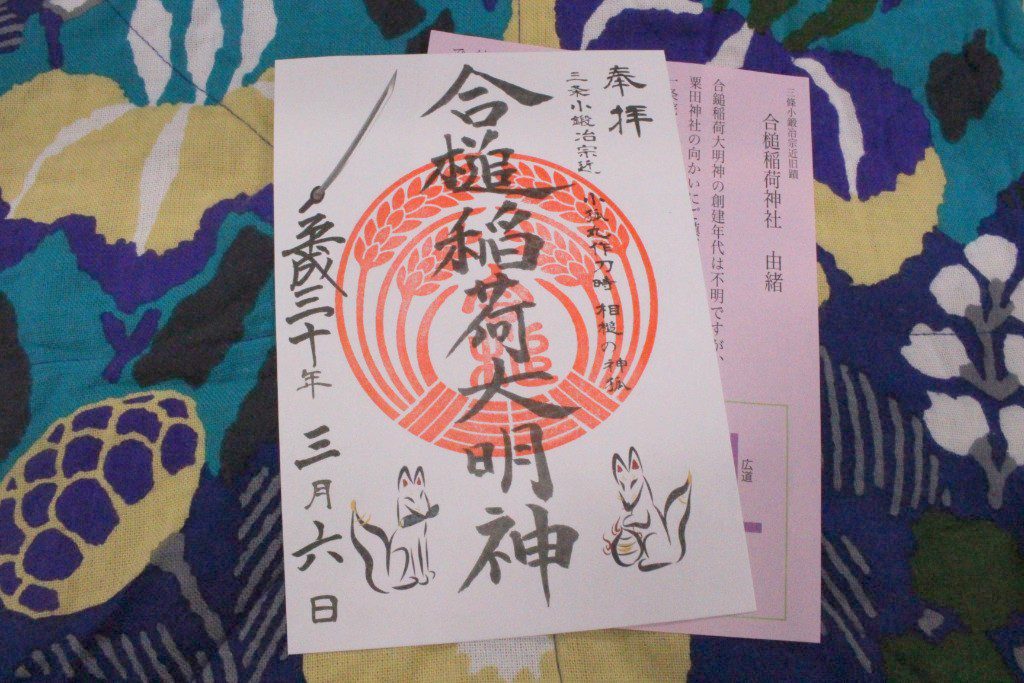 奉拝
三条小鍛冶宗近 小狐丸作刀時 相槌の神狐
合槌稲荷大明神
平成三十年 三月六日
三條小鍛冶宗近旧蹟
合槌稲荷神社 由緒
合槌稲荷大明神の創建年代は不明ですが、
粟田神社の向かいにご
広道